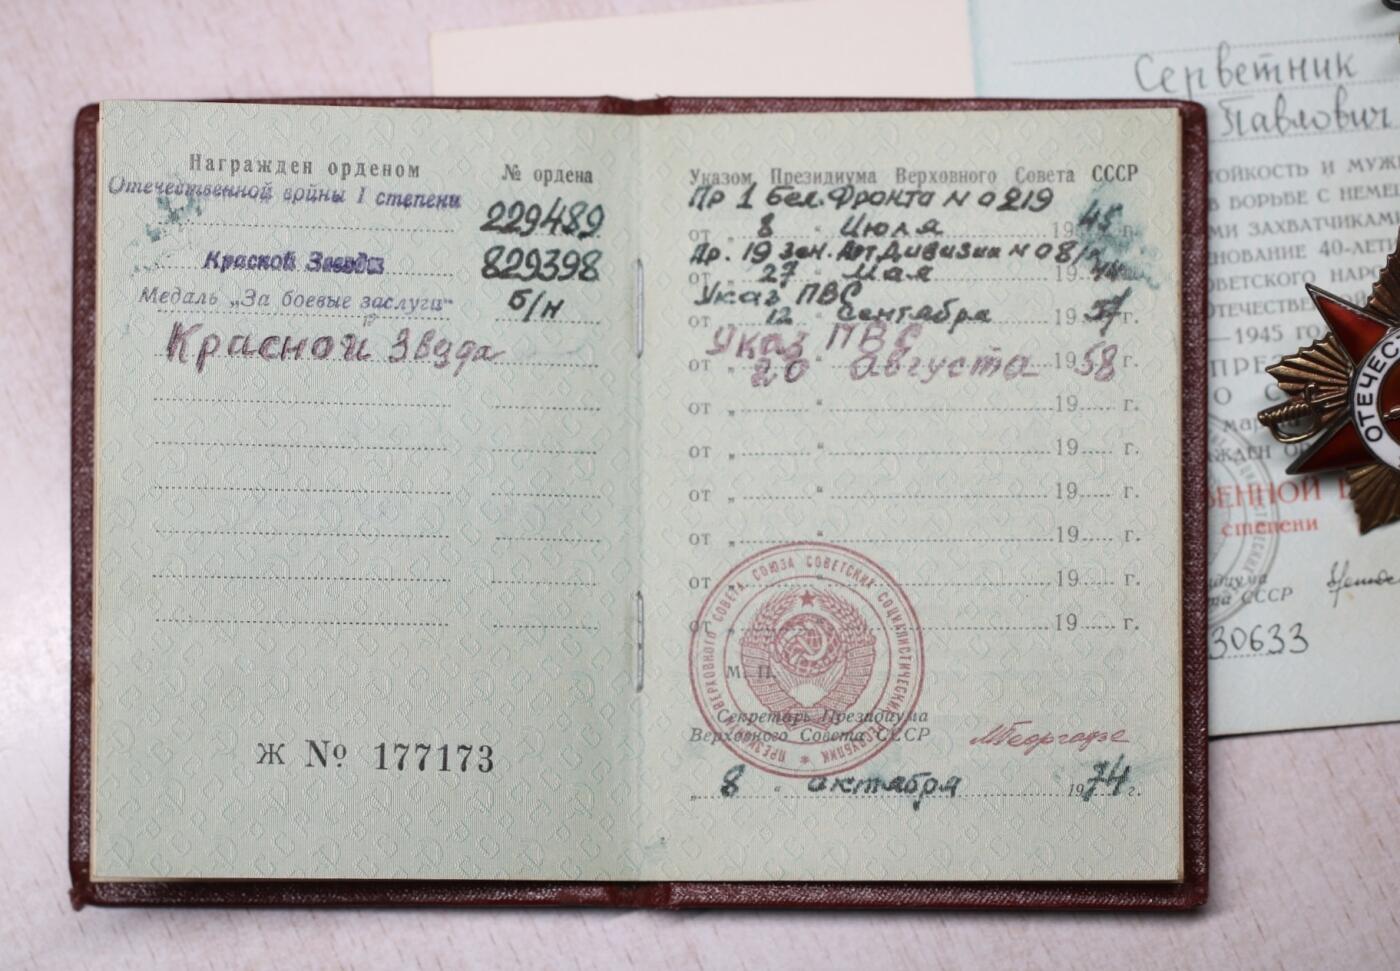 Награжден орденом № ордена
Отечественной войны I степени 229489
Красной Звезды 829398
Медаль „За боевые заслуги“ б/н
Красной Звезда
Ж № 177173
Указом Президиума Верховного Совета СССР
Пр 1 Бел. Фронта № 0219
от „ 8 “ Июля 1945 г.
Пр. 19 зен. Арт Дивизии № 08/н
от „ 27 “ Мая
Указ ПВС
от „ 12 “ Сентября 1957 г.
Указ ПВС
от „ 20 “ Августа 1958 г.
от „ “ 19 г.
от „ “ 19 г.
от „ “ 19 г.
от „ “ 19 г.
от „ “ 19 г.
от „ “ 19 г.
ПРЕЗИДИУМ ВЕРХОВНОГО СОВЕТА СОЮЗА СОВЕТСКИХ СОЦИАЛИСТИЧЕСКИХ РЕСПУБЛИК
М. П.
Секретарь Президиума
Верховного Совета СССР МГеоргадзе
„ 8 “ октября 1974 г.
Серветник
Павлович
ТОЙКОСТЬ И МУЖ
В БОРЬБЕ С НЕМЕ
МИ ЗАХВАТЧИКАМИ
НОВАНИЕ 40-ЛЕТИ
ОВЕТСКОГО НАРОД
ОТЕЧЕСТВЕ
—1945 ГО
ПРЕ
О С
мар
ЖДЕН ОР
ВЕННОЙ В
степени
идиума
та СССР
30633
ОТЕЧЕС